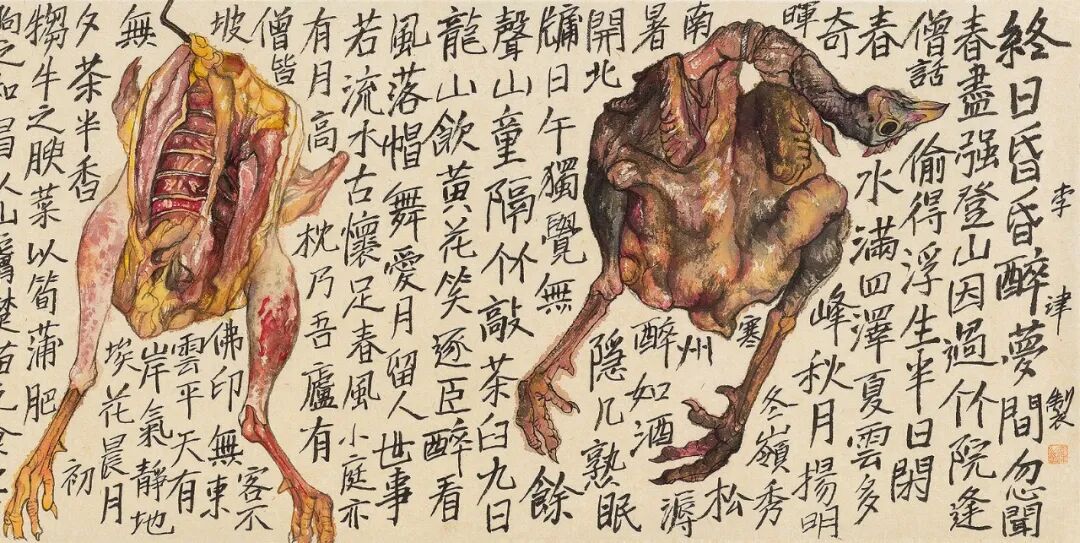 終日昏昏醉夢間忽聞
春盡强登山因過竹院逢
僧話偷得浮生半日閑
春水滿四澤夏雲多
奇峰秋月揚明
暉冬嶺秀
寒松
南州溽
暑醉如酒
隱几熟眠
開北
牖日午獨覺無餘
聲山童隔竹敲茶臼九日
龍山飲黄花笑逐臣醉看
風落帽舞愛月留人世事
若流水古懷足春風小庭亦
有月高枕乃吾廬有
僧皆佛印無客不東
坡雲平天有
岸氣靜地
無埃花晨月
夕茶半香初
犓牛之腴菜以筍蒲肥
狗之和冒以山膚楚苗之食
李津製